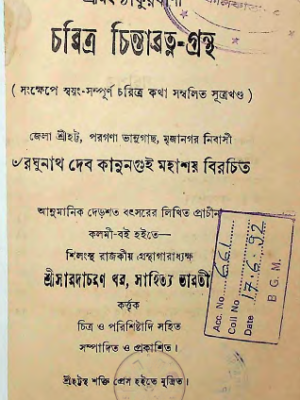 চরিত্র চিন্তারত্ন-গ্রন্থ
( সংক্ষেপে স্বয়ং-সম্পূর্ণ চরিত্র কথা সম্বলিত সূত্রখণ্ড )
জেলা শ্রীহট্ট, পরগণা ভানুগাছ, মুন্সানগর নিবাসী
৺রঘুনাথ দেব কানুনগুই মহাশয় বিরচিত
আনুমানিক দেড়শত বৎসরের লিখিত প্রাচীন
কলমী-বই হইতে—
শিলংস্থ রাজকীয় গ্রন্থাগারাধ্যক্ষ
শ্রীসারদাচরণ ধর, সাহিত্য ভারতী
কর্ত্তৃক
চিত্র ও পরিশিষ্টাদি সহিত
সম্পাদিত ও প্রকাশিত।
শ্রীহট্টস্থ শক্তি প্রেস হইতে মুদ্রিত।
Acc. No. 661
Coll No
Date 17.6.92
B G M.